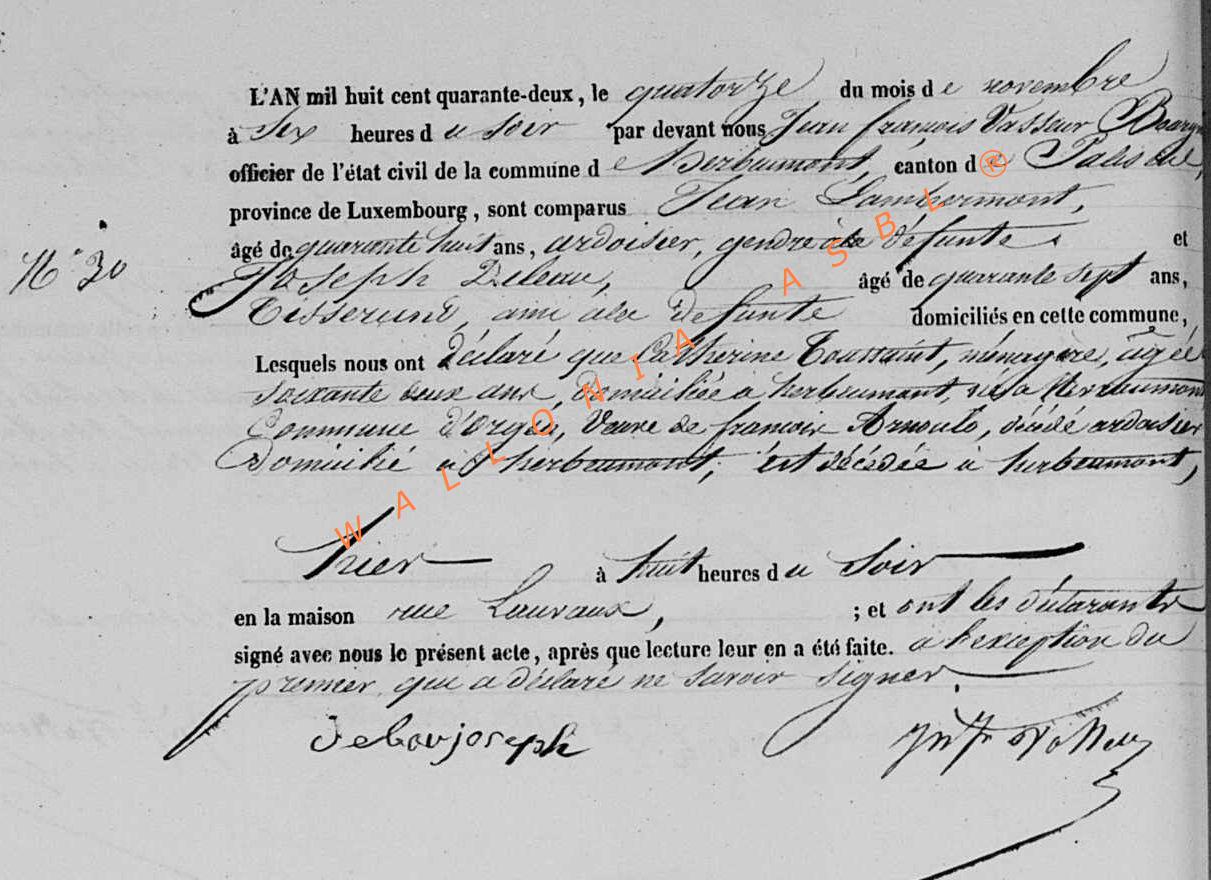 L'AN mil huit cent quarante-deux, le quatorze du mois de novembre
à Six heures du soir par devant nous Jean françois Vasseur Bourgm
officier de l'état civil de la commune de herbeumont, canton de Paliseul,
province de Luxembourg, sont comparus Jean Lambermont,
âgé de quarante huit ans, ardoisier, gendre à la défunte et
N° 30
Joseph Deleau, âgé de quarante sept ans,
Tisserand, ami à la defunte domiciliés en cette commune,
Lesquels nous ont déclaré que Catherine Toussaint, ménagère, âgée
soixante deux ans, domiciliée à herbeumont, née à
Commune d'Orgeo, Veuve de francois Arnould, décédé ardoisier
Domicilié à herbeumont, est décédée à herbeumont,
hier à huit heures du Soir
en la maison rue Lauvaux, ; et ont les déclarants
signé avec nous le présent acte, après que lecture leur en a été faite. à l'exception du
premier que a déclaré ne savoir signer.
WALLONIA ASBL ®